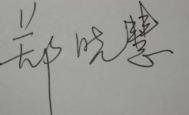 郑晓慧